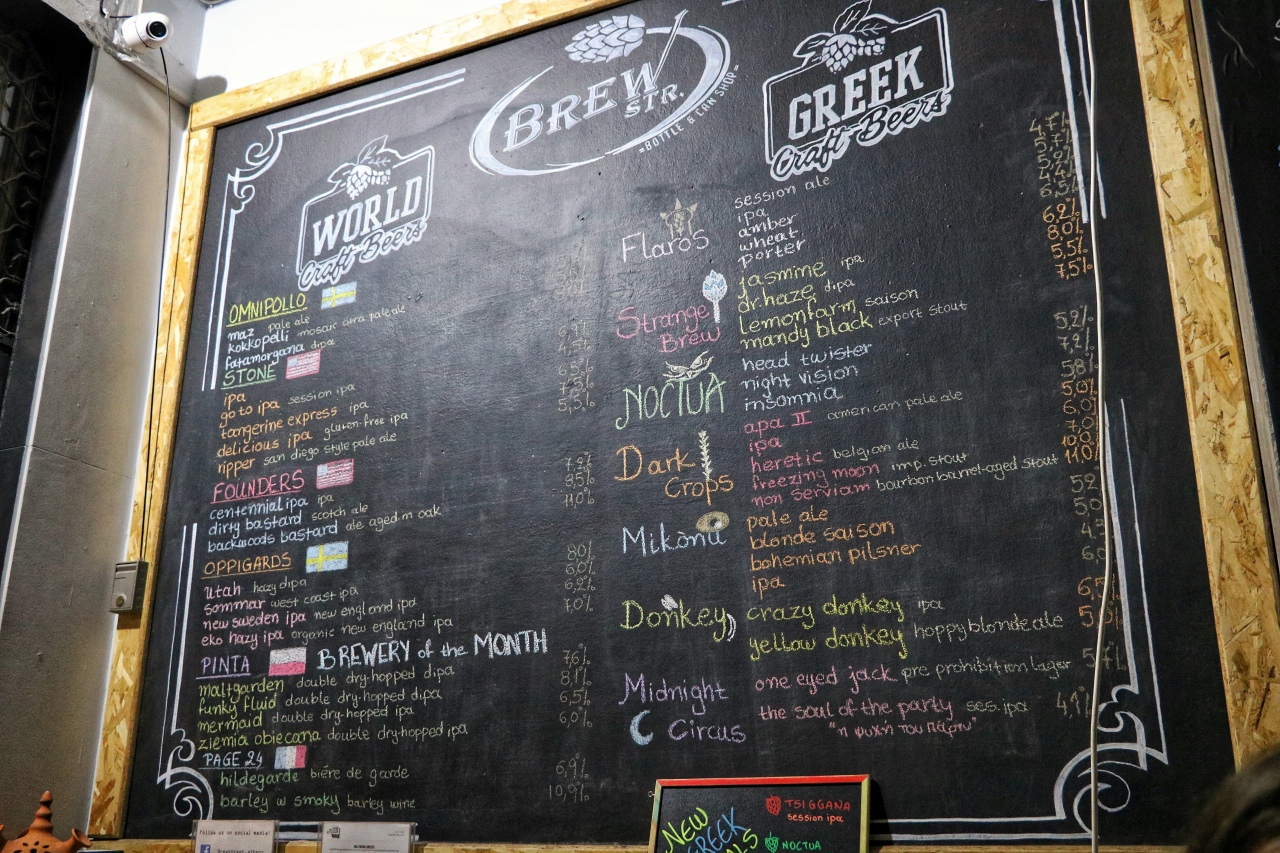 BREW
STR.
=BOTTLE & CAN SHOP=
WORLD
Craft Beers
OMNIPOLLO
maz pale ale
kokkopelli mosaic
fatamorgana dipa
STONE
ipa
go to ipa session ipa
tangerine express ipa
delicious ipa gluten-free ipa
ripper san diego style pale ale
FOUNDERS
centennial ipa ipa
dirty bastard scotch ale
backwoods bastard ale aged in oak
OPPIGARDS
utah hazy dipa
sommar west coast ipa
new sweden ipa new england ipa
eko hazy ipa organic new england ipa
PINTA BREWERY of the MONTH
maltgarden double dry-hopped dipa 7,6%
funky fluid double dry-hopped dipa 8,1%
mermaid double dry-hopped ipa 6,5%
ziemia obiecana double dry-hopped ipa 6,0%
PAGE 24
hildegarde biére de garde 6,9%
barley w smoky barley wine 10,9%
GREEK
Craft-Beers
Flaros
session ale 4,7%
ipa
amber
wheat
porter
Strange
Brew
jasmine ipa 6,2%
dr.haze dipa 8,0%
lemonfarm saison 5,5%
mandy black export stout 7,5%
NOCTUA
head twister 5,2%
night vision 7,2%
insomnia 5,8%
Dark
Crops
apa II american pale ale 5,0%
ipa 6,0%
heretic belgian ale 7,0%
freezing moon imp. stout 10,0%
non serviam bourbon barrel-aged stout 11,0%
Mikònu
pale ale
blonde saison
bohemian pilsner
ipa
Donkey
crazy donkey ipa
yellow donkey hoppy blonde ale
Midnight
Circus
one eyed jack pre prohibition lager
the soul of the party ses. ipa 4,1%
"η ψυχή του πάρτυ"
NEW
GREEK
TSIGGANA
session ipa
NOCTUA
Follow us on social media!